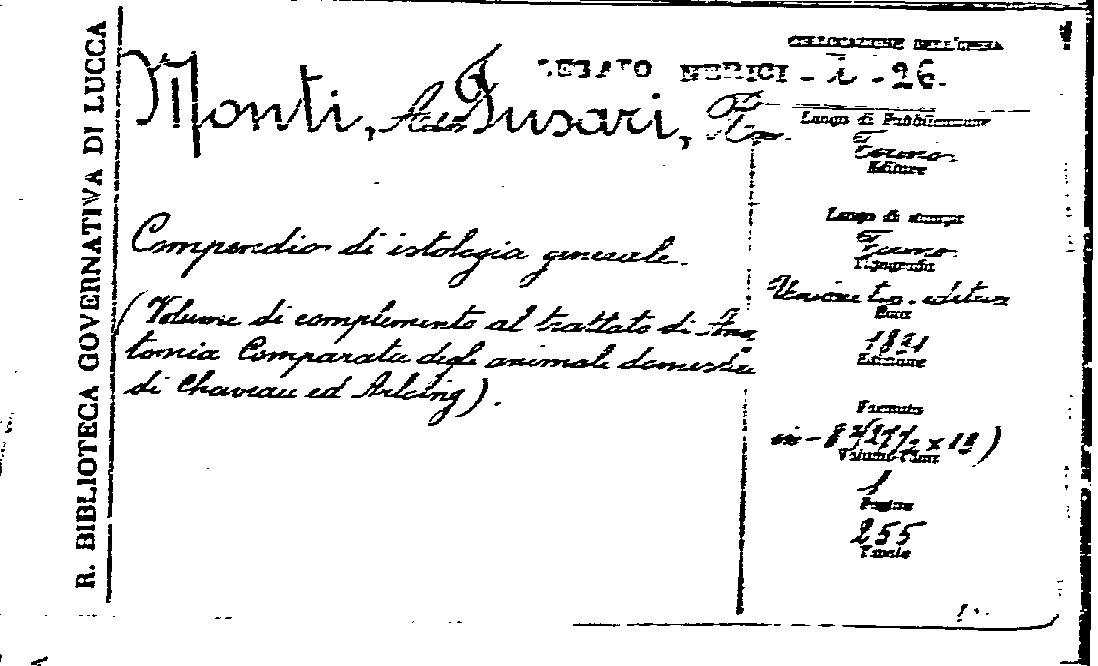 R. BIBLIOTECA GOVERNATIVA DI LUCCA
COLLOCAZIONE DELL'OPERA
LEGATO NERICI - I - 26.
Monti, Fusari,
Luogo di Pubblicazione
Torino.
Editore
Luogo di stampa
Torino
Tipografia
Unione tip. editrice
Data
Edizione
Formato
in-8
Volume
1
Pagine
255
Tavole
Compendio di istologia generale.
(Volume di complemento al trattato di Ana
tomia Comparata degli animali domestici
di Chaveau ed Arloing).